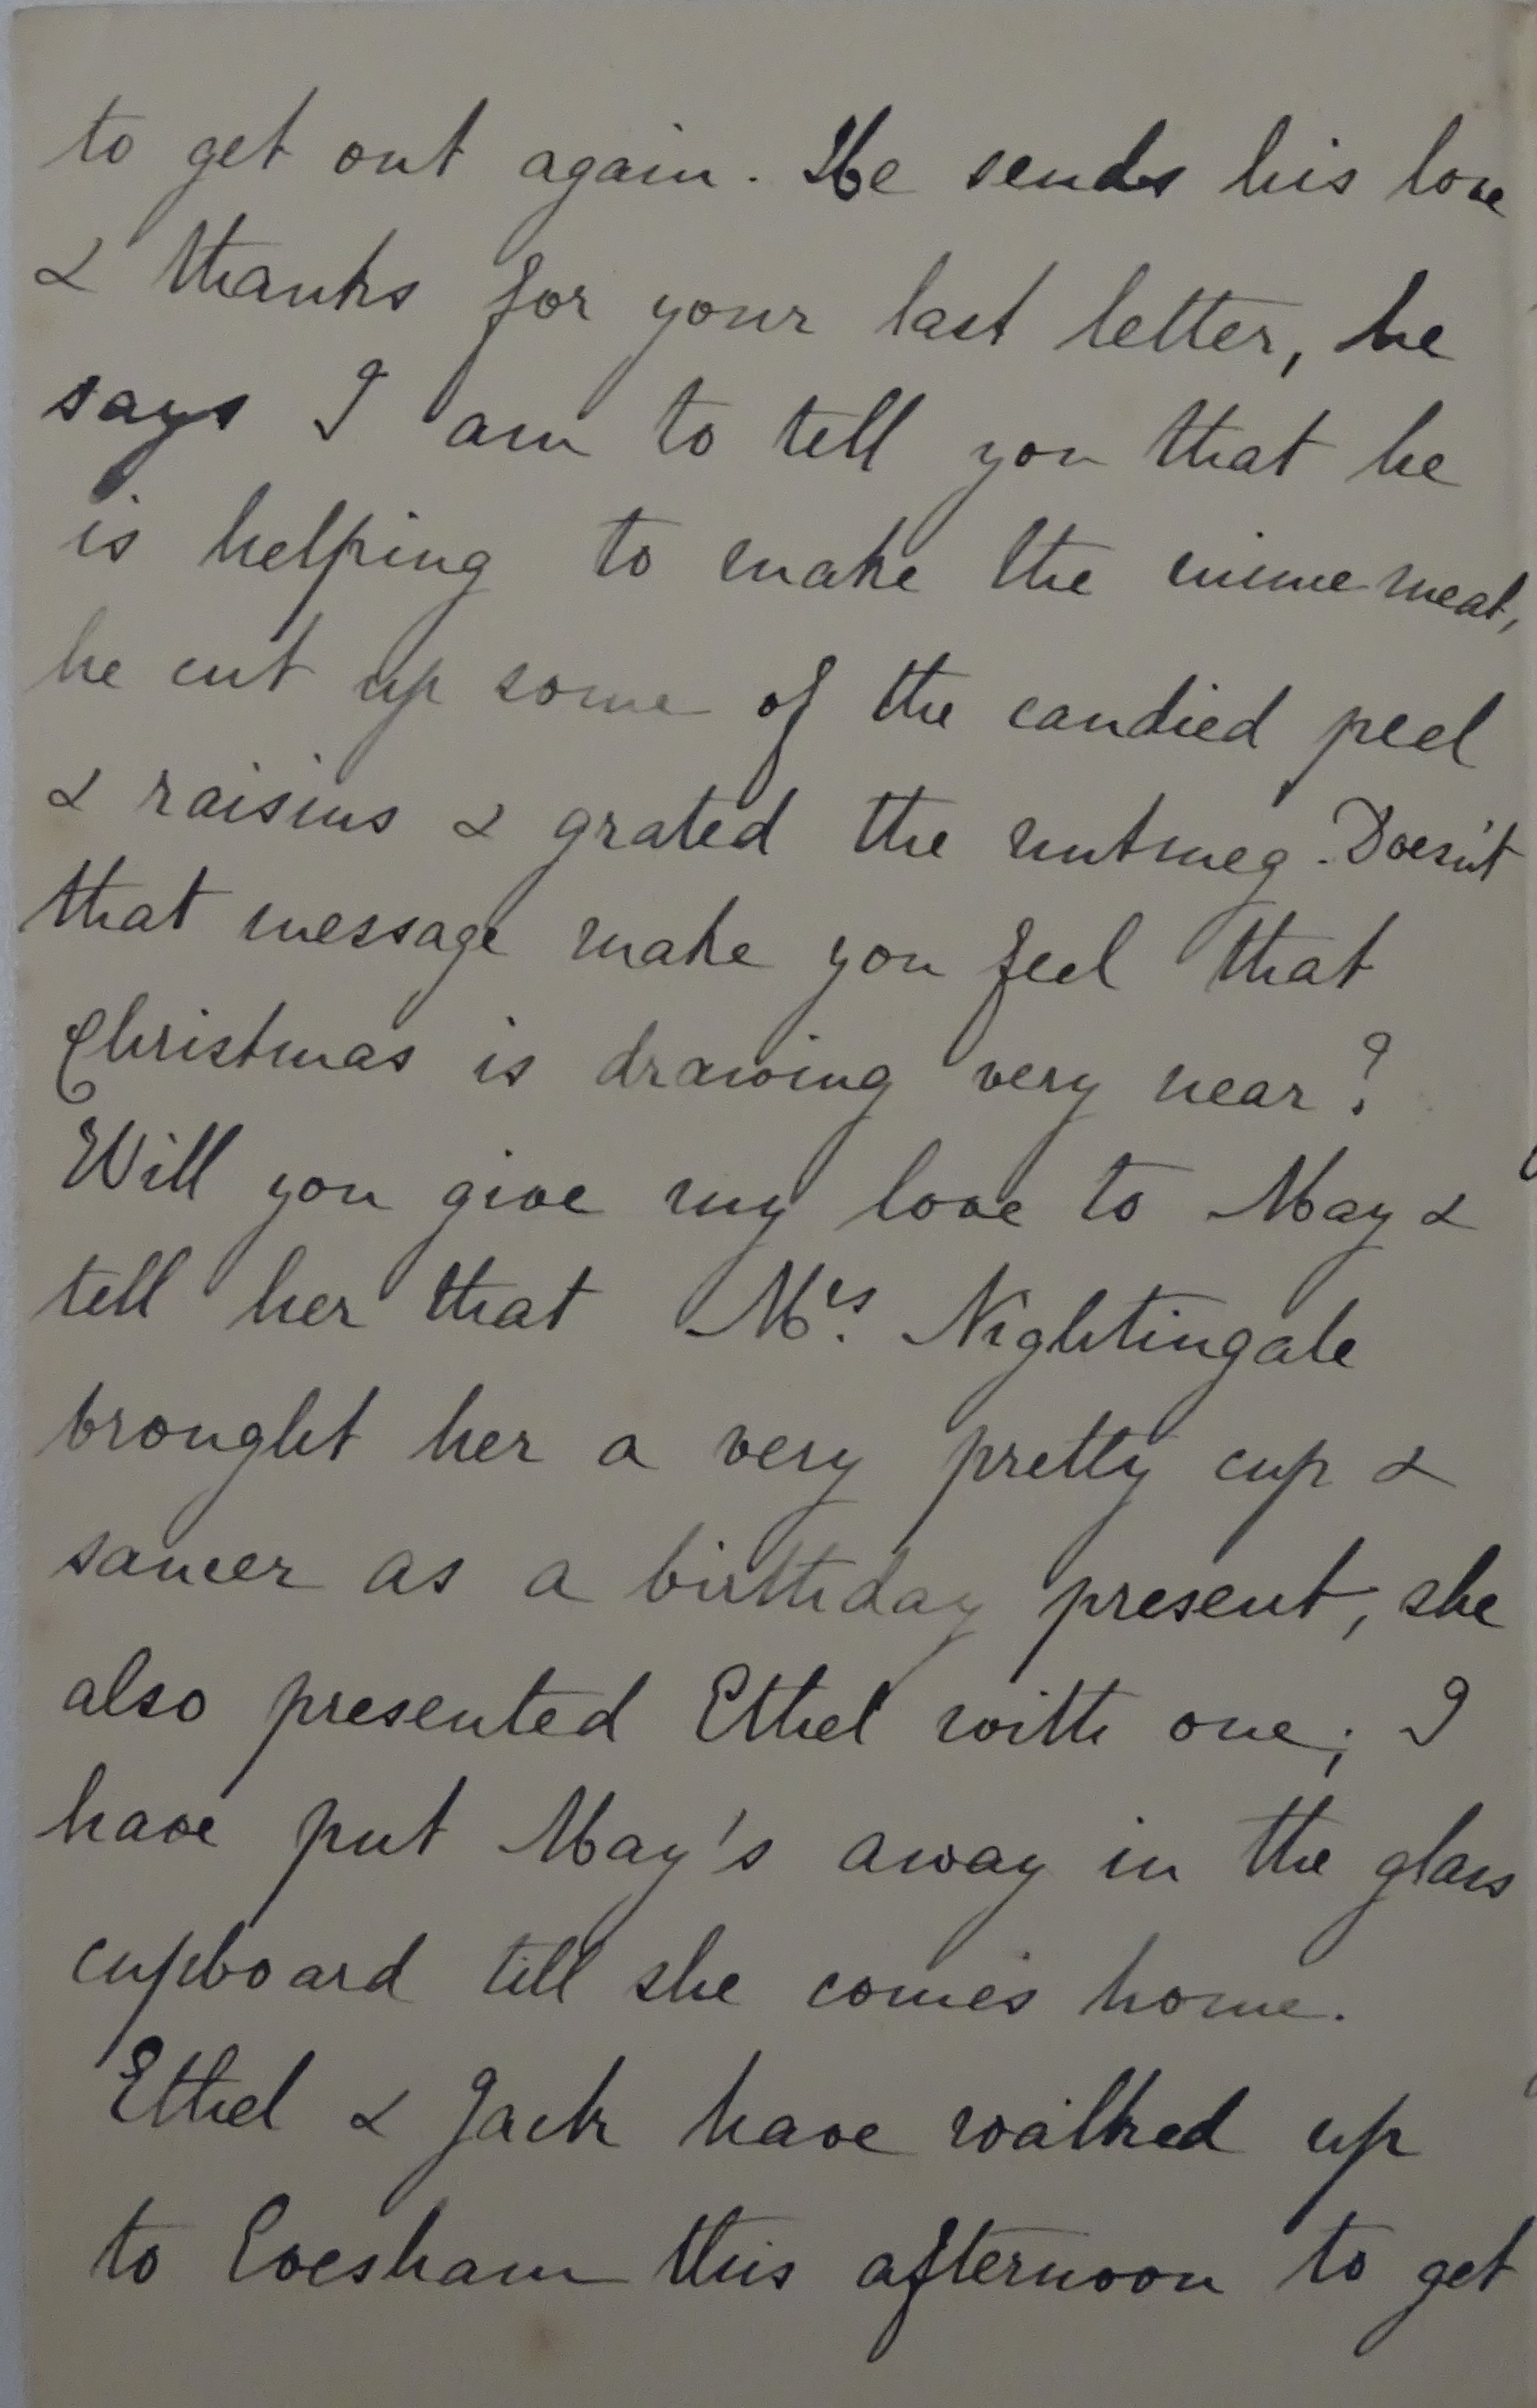 to get out again. He sends his love
& thanks for your last letter, he
says I am to tell you that he
is helping to make the mincemeat,
he cut up some of the candied peel
& raisins & grated the nutmeg. Doesn't
that message make you feel that
Christmas is drawing very near?
Will you give my love to May &
tell her that Mrs. Nightingale
brought her a very pretty cup &
saucer as a birthday present, she
also presented Ethel with one; I
have put May's away in the glass
cupboard till she comes home.
Ethel & Jack have walked up
to Evesham this afternoon to get